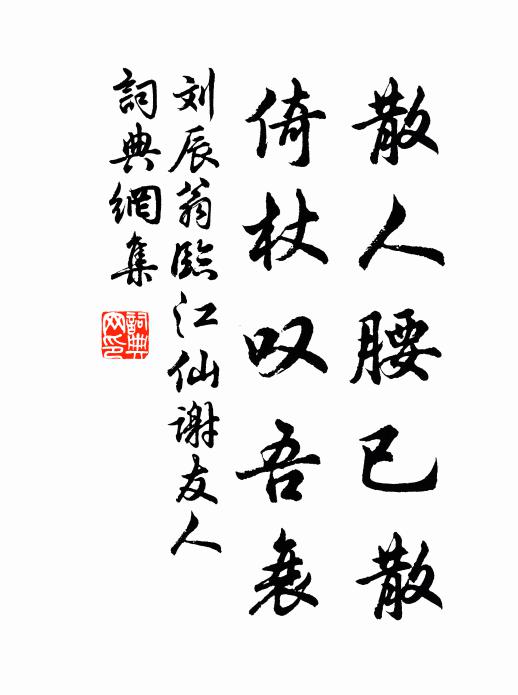 散人腰已散
倚杖叹吾衰
刘辰翁臨江仙谢友人
詞典網集
詞典网印